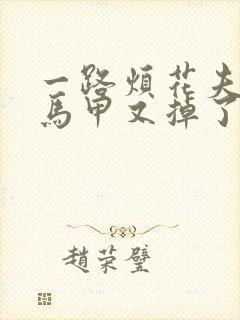 一路煩花夫
馬甲又掉了
趙荣璧